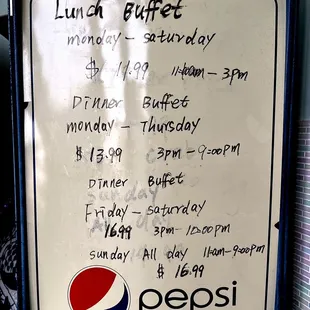 Lunch Buffet
monday - saturday
$ 11.99 11:00am - 3pm
Dinner Buffet
monday - Thursday
$ 13.99 3pm - 9:00pm
Dinner Buffet
Friday - saturday
16.99 3pm - 10:00pm
sunday All day 11am - 9:00pm
$ 16.99
pepsi